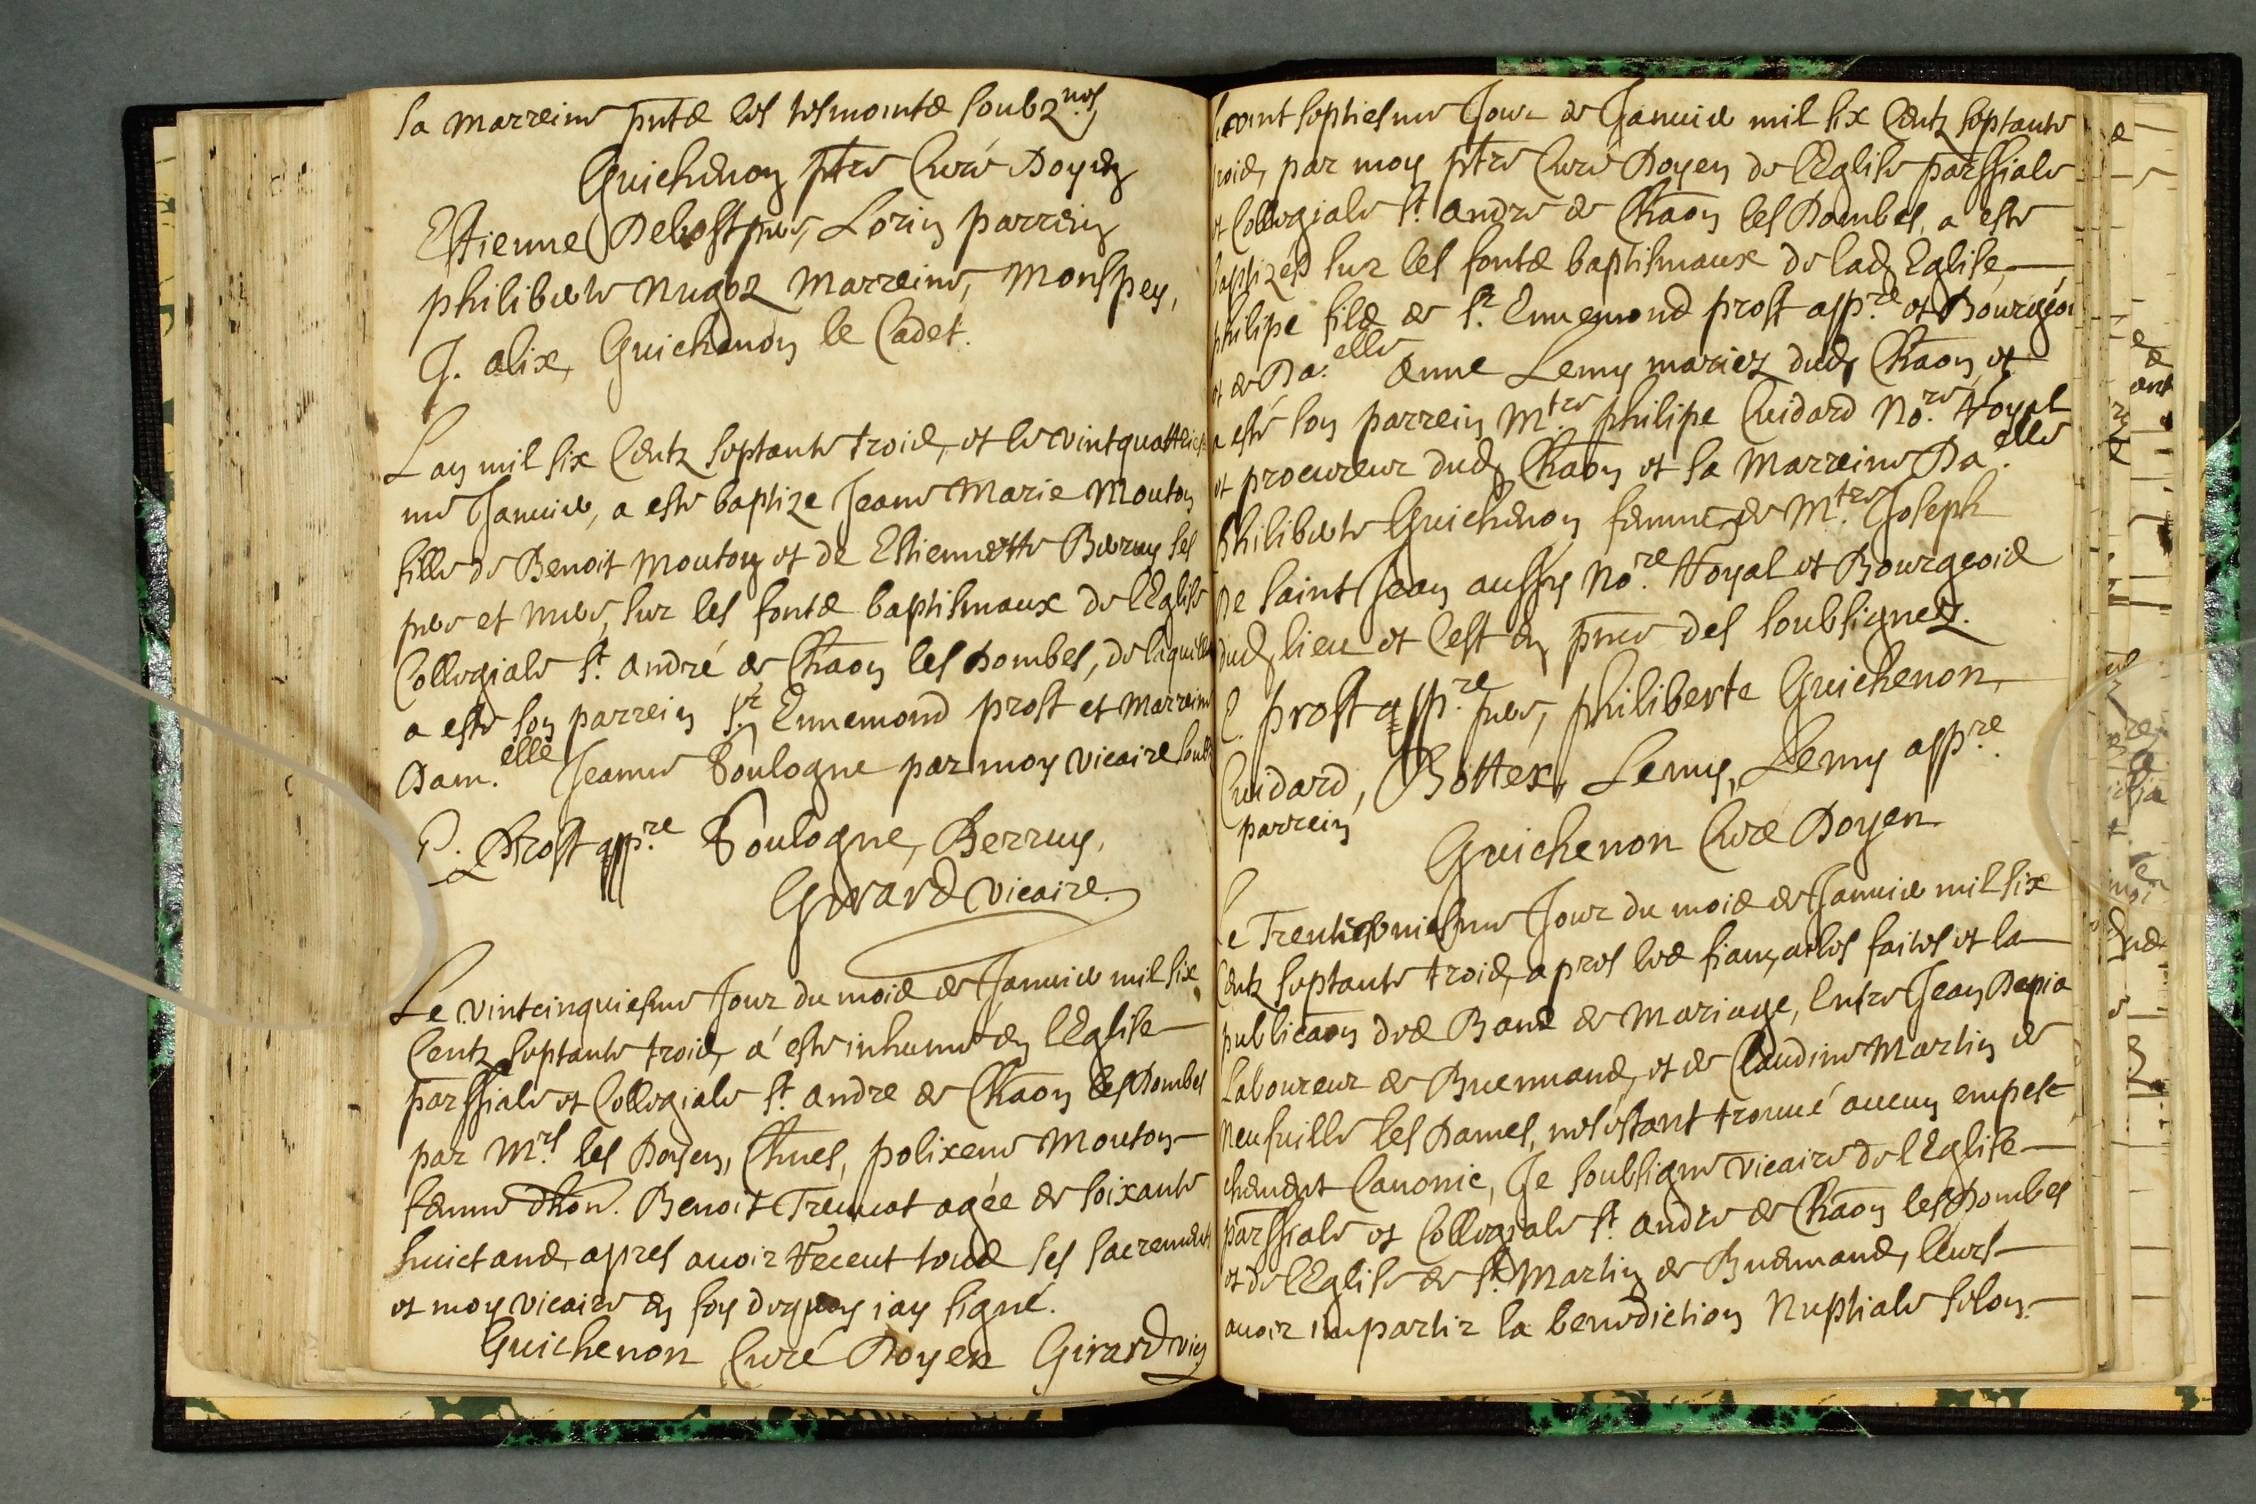 sa marreine pntz les tesmointz soubz.nes
Guichenon ptre Curé Doyen
Estienne Debost pere, Lorin parrein
philiberte Nugoz Marreine, Monspey,
J. alix, Guichenon le Cadet.
L'an mil six Centz septante trois, et le vintquattries
me Janvier, a esté baptize Jeane Marie Mouton
fille de Benoit Mouton et de Estiennette Berruy ses
pere et mere, sur les fontz baptismaux de l'Eglise
Collegiale St. andré de Chãon les Dombes, de laquelle
a esté son parrein Sr. Ennemond prost et Marreine
Dam.elle Jeanne Boulogne par moy vicaire soubs
E. Prost app.re Boulogne, Berruy,
Girard vicaire.
Le vintcinquiesme Jour du mois de Janvier mil six
Centz septante trois, a esté inhumé en l'Eglise
parssiale et Collegiale St. andre de Chãon les Dombes
par Mrs. les Doyen, Chnes, polixene Mouton
femme d'hon. Benoit Trennot agée de soixante
huict ans, apres avoir Receut tous ses sacrements
et moy vicaire en foy dequoy iay signé.
Guichenon Curé Doyen Girard vic
Le vint septiesme Jour de Janvier mil six Centz septante
trois, par moy ptre Curé Doyen de l'Eglise parssiale
et Collegiale St. andre de Chãon les Dombes, a esté
baptizés sur les fontz baptismaux de lad. Eglise
philipe filz de Sr. Ennemond prost app.re et Bourgeois
et de Da.elle anne Lemy mariez dud. Chãon, et
a esté son parrein M.tre philipe Cuidard No.re Royal
et procureur dud. Chãon et sa Marreine Da.elle
philiberte Guichenon femme de M.tre Joseph
De Saint Jean aussy No.re Royal et Bourgeois
dud. lieu et c'est en pnce des soubsignez.
E. prost app.re pere, philiberte Guichenon,
Cuidard, Bottex, Lemy, Lemy app.re
parrein
Guichenon Curé Doyen
Le Trentiesme Jour du mois de Janvier mil six
Centz septante trois, apres les fiançailles faites et la
publicaõn des Bans de Mariage, Entre Jean Depia
Laboureur de Buenmans, et de Claudine Martin de
Neufville les Dames, ne s'estant trouué aucun empesc
chement Canonic, Je soubsigne vicaire de l'Eglise
parssiale et Collegiale St. andre de Chãon les Dombes
et de l'Eglise de St. Martin de Buenmans, leurs
avoir impartir la benediction Nuptiale selon